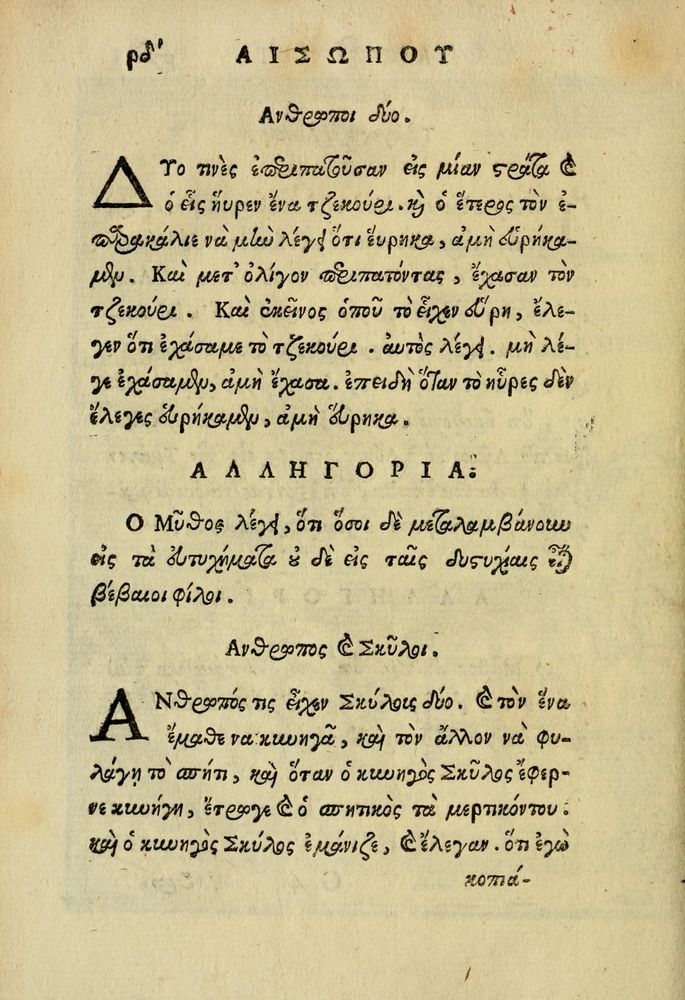 ρδ' ΑΙΣΩΠΟΥ
Ανθρωποι δύο.
ΔΥο τινὲς ἐπεριπατοῦσαν εἰς μίαν στράτα καὶ
ὁ εἷς ἥυρεν ἕνα τζεκούρι. κὶ ὁ ἕτερος τὸν ἐ-
παρακάλιε νὰ μὴν λέγει ὅτι ἕυρηκα, ἀμὴ εὑρήκα-
μεν. Καὶ μετ' ὀλίγον περιπατόντας, ἔχασαν τὸν
τζεκούρι. Καὶ ἐκεῖνος ὁποῦ τὸ εἶχεν εὕρη, ἔλε-
γεν ὅτι ἐχάσαμε τὸ τζεκούρι. ἀυτὸς λέγει. μὴ λέ-
γε ἐχάσαμεν, ἀμὴ ἔχασα. ἐπειδὴ ὅταν τὸ ηὗρες δὲν
ἔλεγες εὑρήκαμεν, ἀμὴ εὕρηκα.
ΑΛΛΗΓΟΡΙΑ.
Ο Μῦθος λέγει, ὅτι ὅσοι δὲ μεταλαμβάνουν
εἰς τὰ εὐτυχήματα οὐ δὲ εἰς ταῖς δυστυχίαις εἶναι
βέβαιοι φίλοι.
Ανθρωπος καὶ Σκῦλοι.
ΑΝθρωπός τις εἶχεν Σκύλοις δύο. καὶ τὸν ἕνα
ἔμαθε να κυνηγᾶ, καὶ τὸν ἄλλον νὰ φυ-
λάγῃ τὸ σπήτι, καὶ ὅταν ὁ κυνηγὸς Σκῦλος ἔφερ-
νε κυνήγι, ἔτρωγε καὶ ὁ σπητικὸς τὰ μερτικόντου.
καὶ ὁ κυνηγὸς Σκύλος ἐμάνιζε, καὶ ἔλεγαν. ὅτι ἐγὼ
κοπιά-